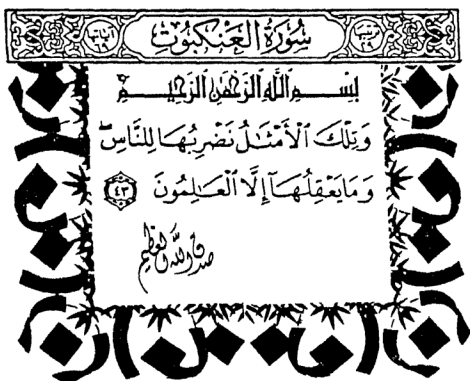 سُورَةُ الْعَنكَبُوت
بِسْمِ اللَّهِ الرَّحْمَٰنِ الرَّحِيمِ
وَتِلْكَ ٱلْأَمْثَٰلُ نَضْرِبُهَا لِلنَّاسِۖ
وَمَا يَعْقِلُهَآ إِلَّا ٱلْعَٰلِمُونَ ٤٣
صدق الله العظيم